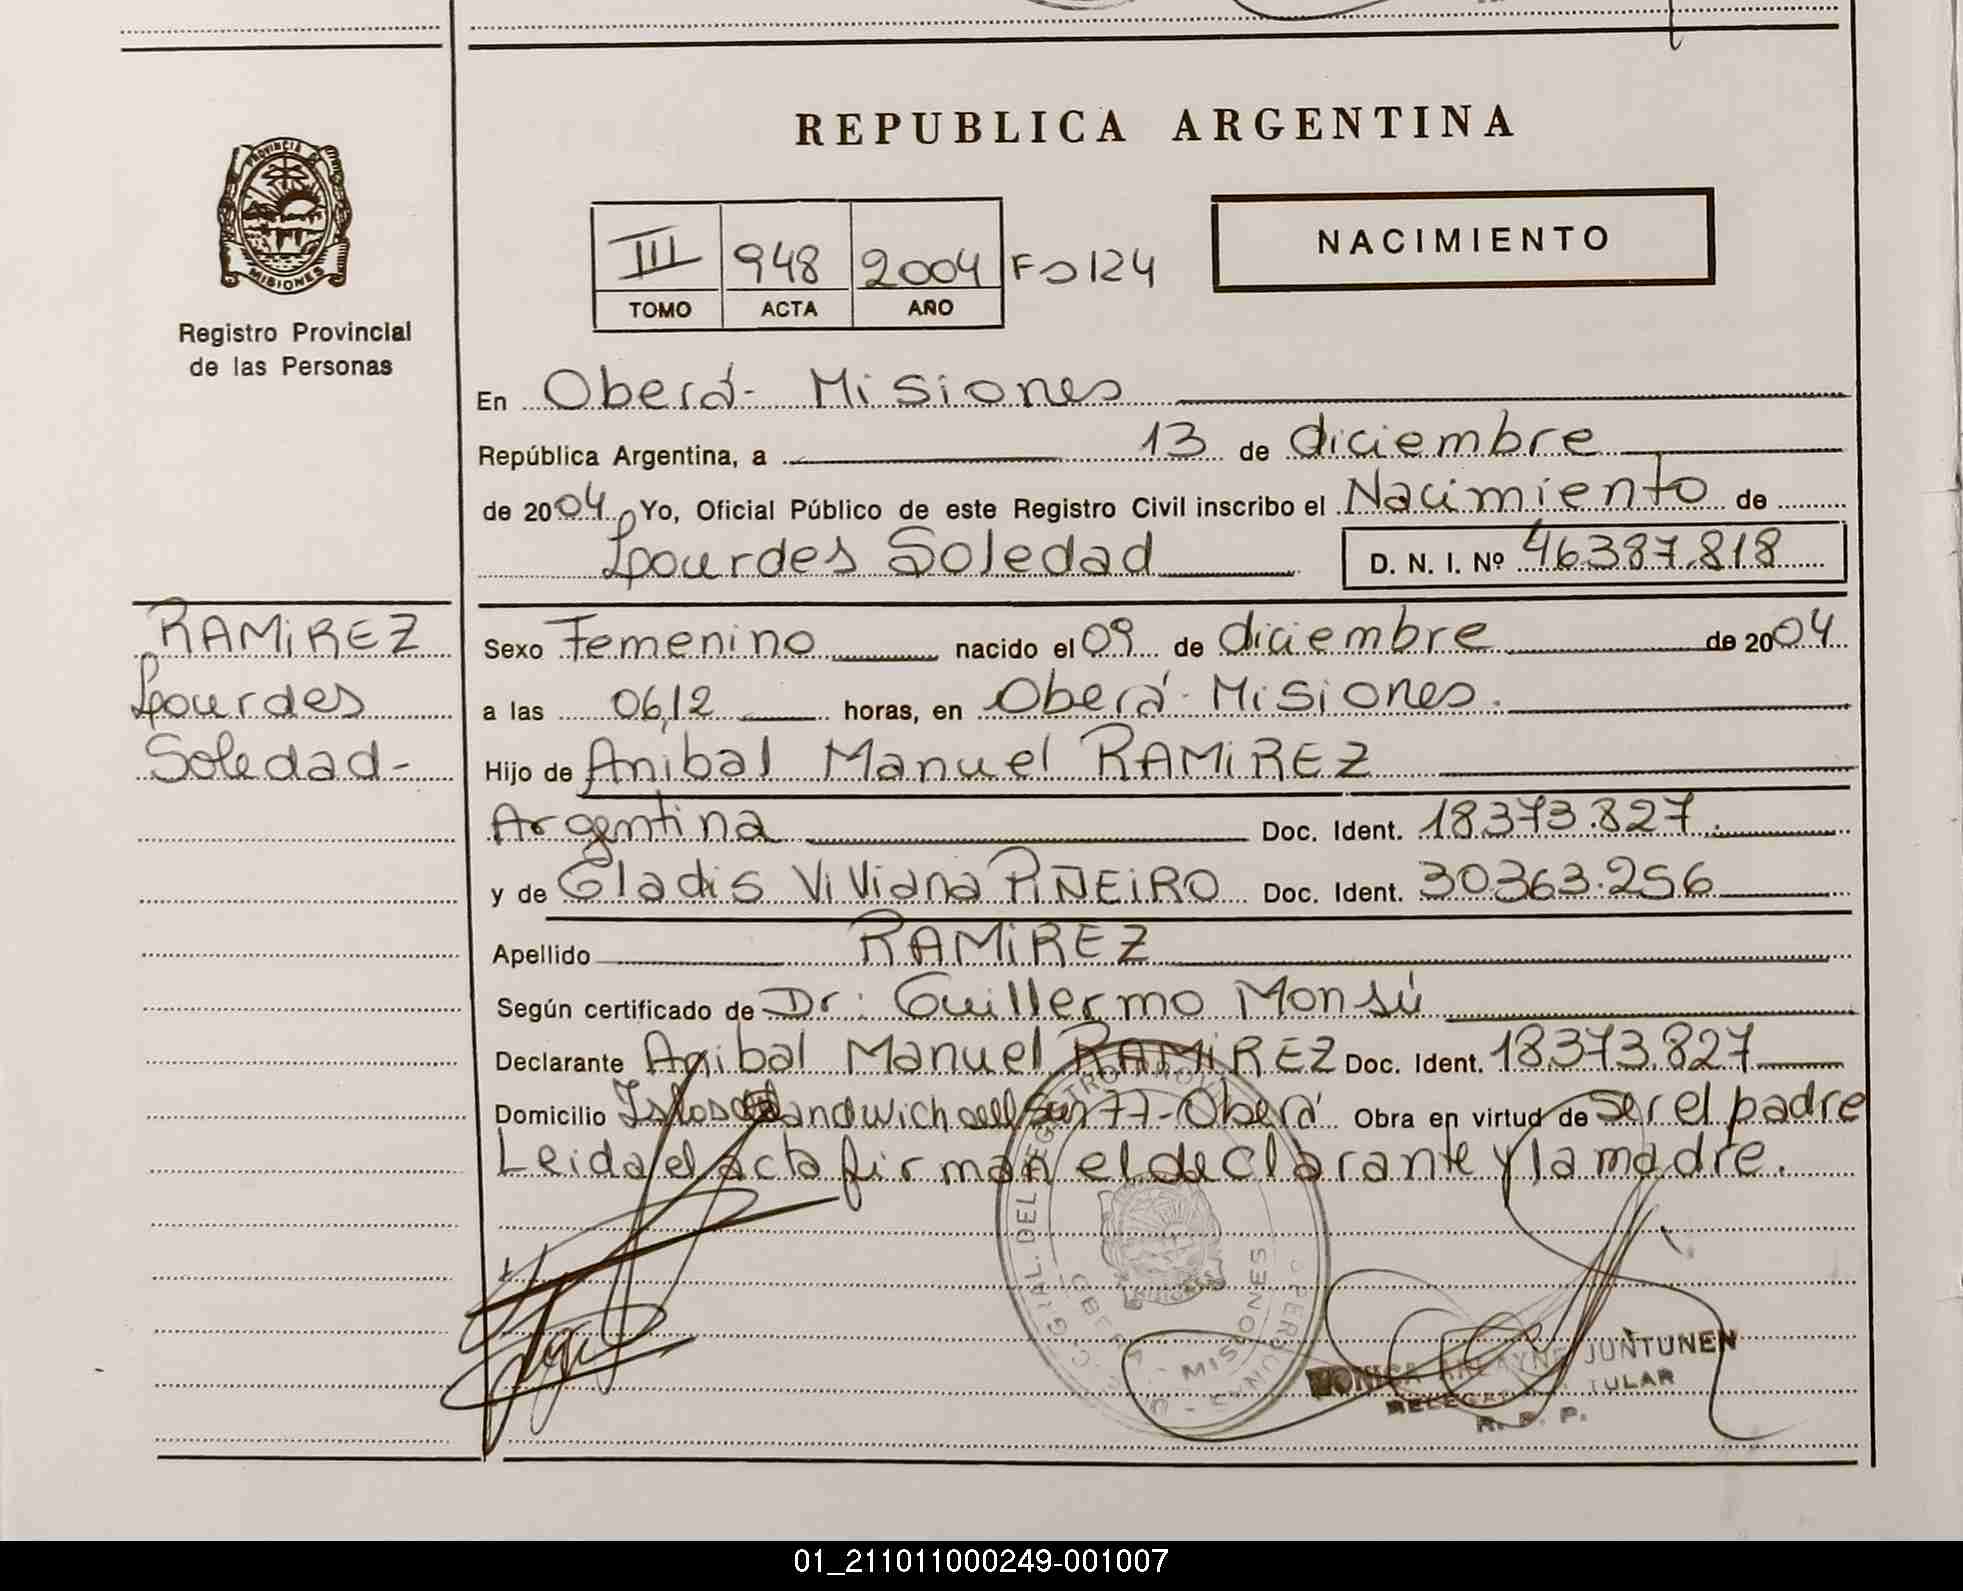 REPUBLICA ARGENTINA
PROVINCIA DE
MISIONES
Registro Provincial
de las Personas
NACIMIENTO
III 948 2004 Fo 124
TOMO ACTA AÑO
En Oberá - Misiones
República Argentina, a 13 de diciembre
de 2004 Yo, Oficial Público de este Registro Civil inscribo el Nacimiento de
Lourdes Soledad D. N. I. Nº 46.387.818
RAMiREZ
Lourdes
Soledad-
Sexo Femenino nacido el 09 de diciembre de 2004
a las 06,12 horas, en Oberá - Misiones.
Hijo de Anibal Manuel RAMiREZ
Argentina Doc. Ident. 18.373.827.
y de Gladis Viviana PiÑEiRO Doc. Ident. 30.363.256
Apellido RAMiREZ
Según certificado de Dr: Guillermo Monsú
Declarante Anibal Manuel RAMiREZ Doc. Ident. 18.373.827
Domicilio Islas Sandwich del Sur 77 - Oberá Obra en virtud de ser el padre
Leida el acta firman el declarante y la madre.
MISIONES
JUNTUNEN
TULAR
R. P. P.
01_211011000249-001007